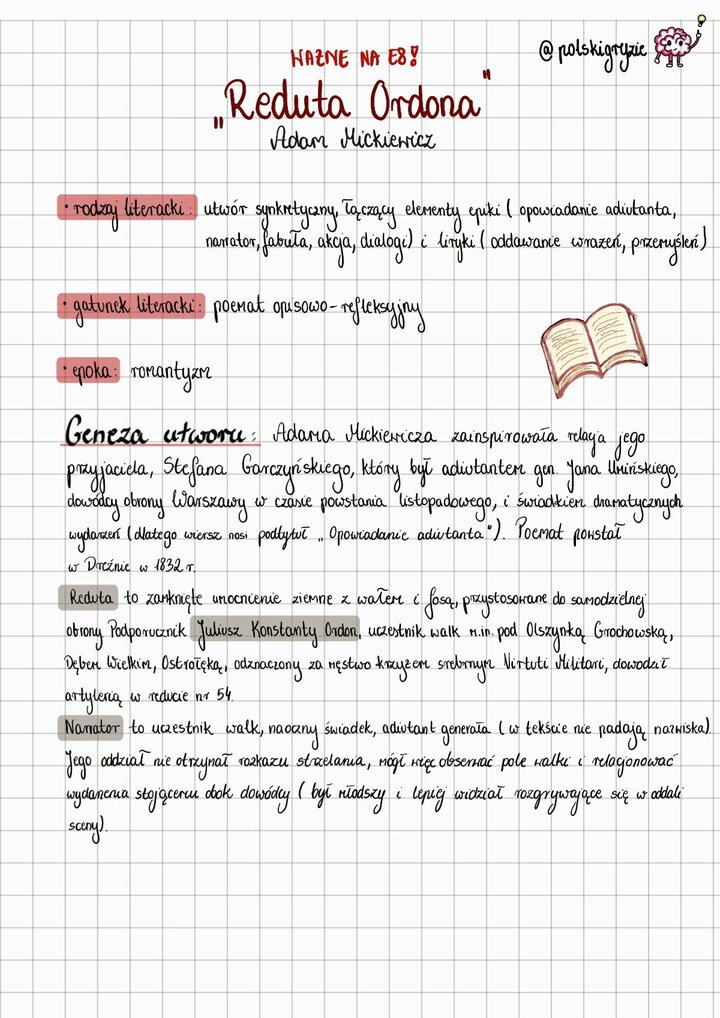 WAŻNE NA E8!
@polskigryzie
„Reduta Ordona"
Adam Mickiewicz
• rodzaj literacki: utwór synkretyczny, łączący elementy epiki (opowiadanie adiutanta,
narrator, fabuła, akcja, dialogi) i liryki (oddawanie wrażeń, przemyśleń)
• gatunek literacki: poemat opisowo-refleksyjny
• epoka: romantyzm
Geneza utworu: Adama Mickiewicza zainspirowała relacja jego
przyjaciela, Stefana Garczyńskiego, który był adiutantem gen. Jana Umińskiego,
dowódcy obrony Warszawy w czasie powstania listopadowego, i świadkiem dramatycznych
wydarzeń (dlatego wiersz nosi podtytuł „Opowiadanie adiutanta"). Poemat powstał
w Dreźnie w 1832 r.
Reduta to zamknięte umocnienie ziemne z wałem i fosą, przystosowane do samodzielnej
obrony Podporucznik Juliusz Konstanty Ordon, uczestnik walk m.in. pod Olszynką Grochowską,
Dębem Wielkim, Ostrołęką, odznaczony za męstwo krzyżem srebrnym Virtuti Militari, dowodził
artylerią w reducie nr 54.
Narrator to uczestnik walk, naoczny świadek, adiutant generała (w tekście nie padają nazwiska).
Jego oddział nie otrzymał rozkazu strzelania, mógł więc obserwać pole walki i relacjonować
wydarzenia stojącemu obok dowódcy (był młodszy i lepiej widział rozgrywające się w oddali
sceny).